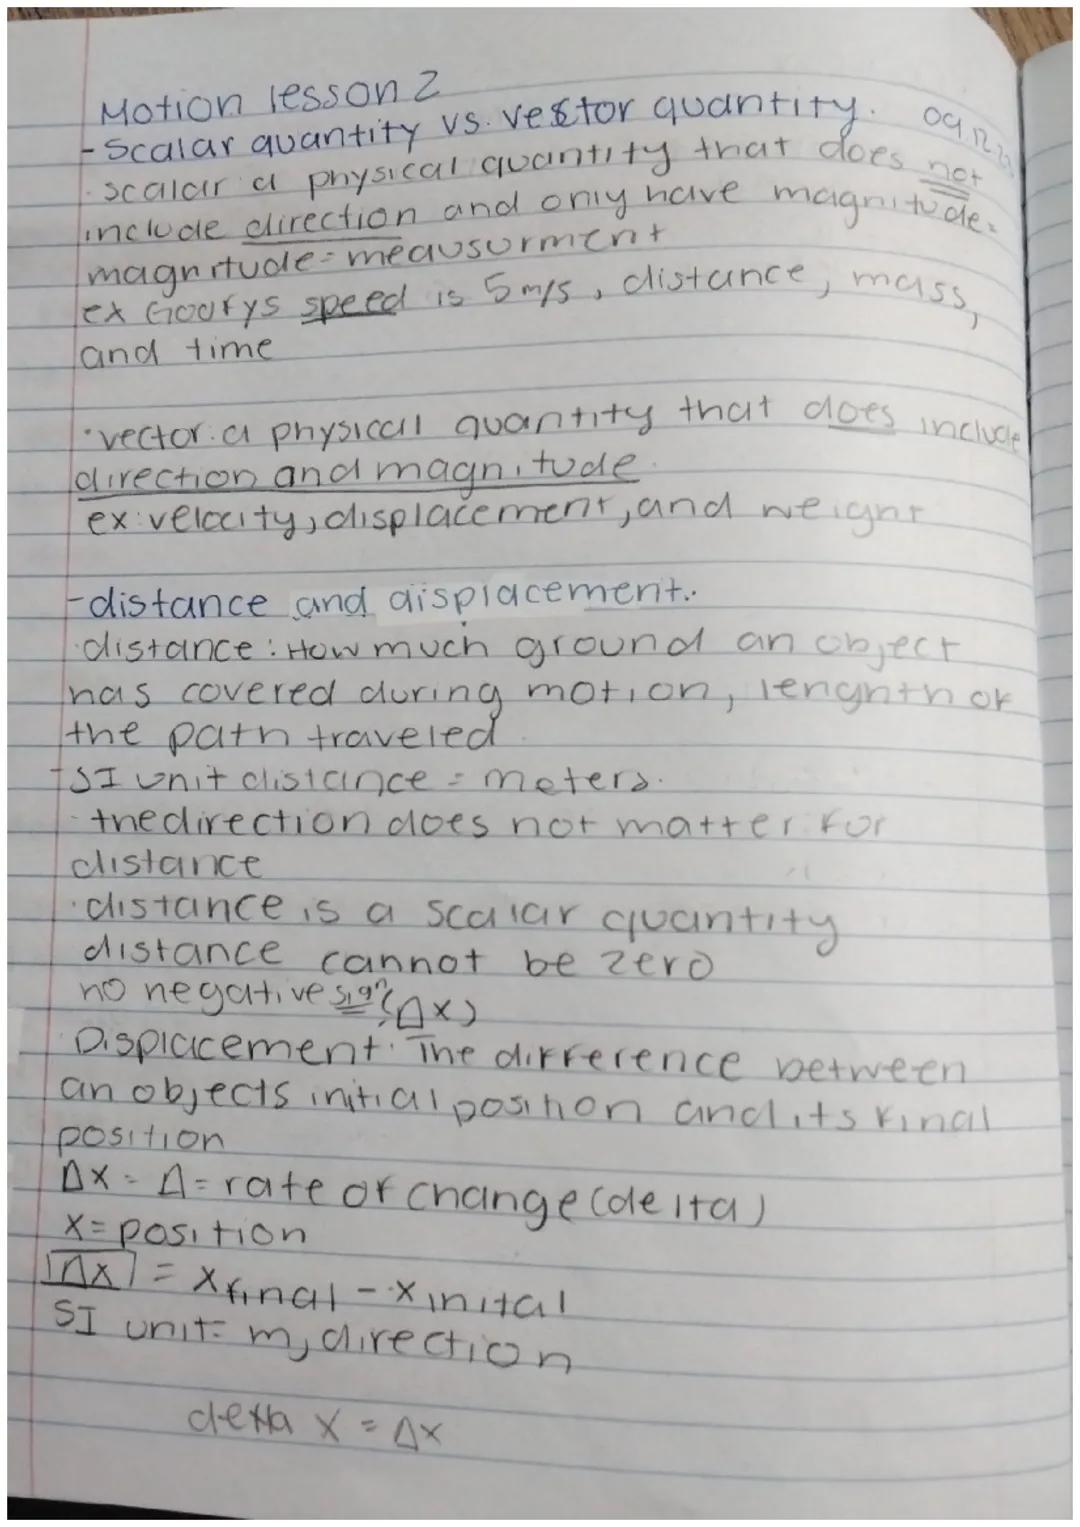 Motion lesson 2
-Scalar quantity vs. vector quantity. 09.12.
·scalar a physical quantity that does not
include direction and only have magnitude.
magnitude=meausurment
ex Goofys speed is 5m/s, distance, mass,
and time
·vector: a physical quantity that does include
direction and magnitude.
ex: velocity, displacement, and weight
-distance and displacement.
·distance: How much ground an object
has covered during motion, lenghth of
the path traveled.
-SI unit distance = meters.
·the direction does not matter for
distance
·distance is a scalar quantity
distance cannot be zero
no negative sign (Δx)
Displacement: The difference between
an objects initial position and its final
position
Δx = Δ=rate of change (delta)
x=position
Δx = x final - x inital
SI unit= m, direction
delta x = Δx